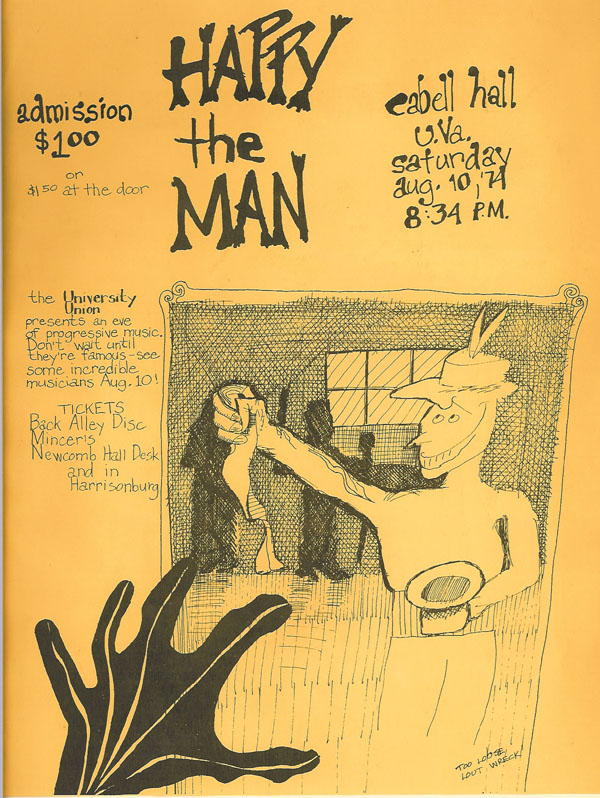 HAPPY
the
MAN
admission
$1.00
or
$1.50 at the door
cabell hall
U.Va.
saturday
aug. 10, '74
8:34 P.M.
the University
Union
presents an eve
of progressive music.
Don't wait until
they're famous - see
some incredible
musicians Aug. 10!
TICKETS
Back Alley Disc
Mincer's
Newcomb Hall Desk
and in
Harrisonburg
TOO LOOSE
LOUT WRECK